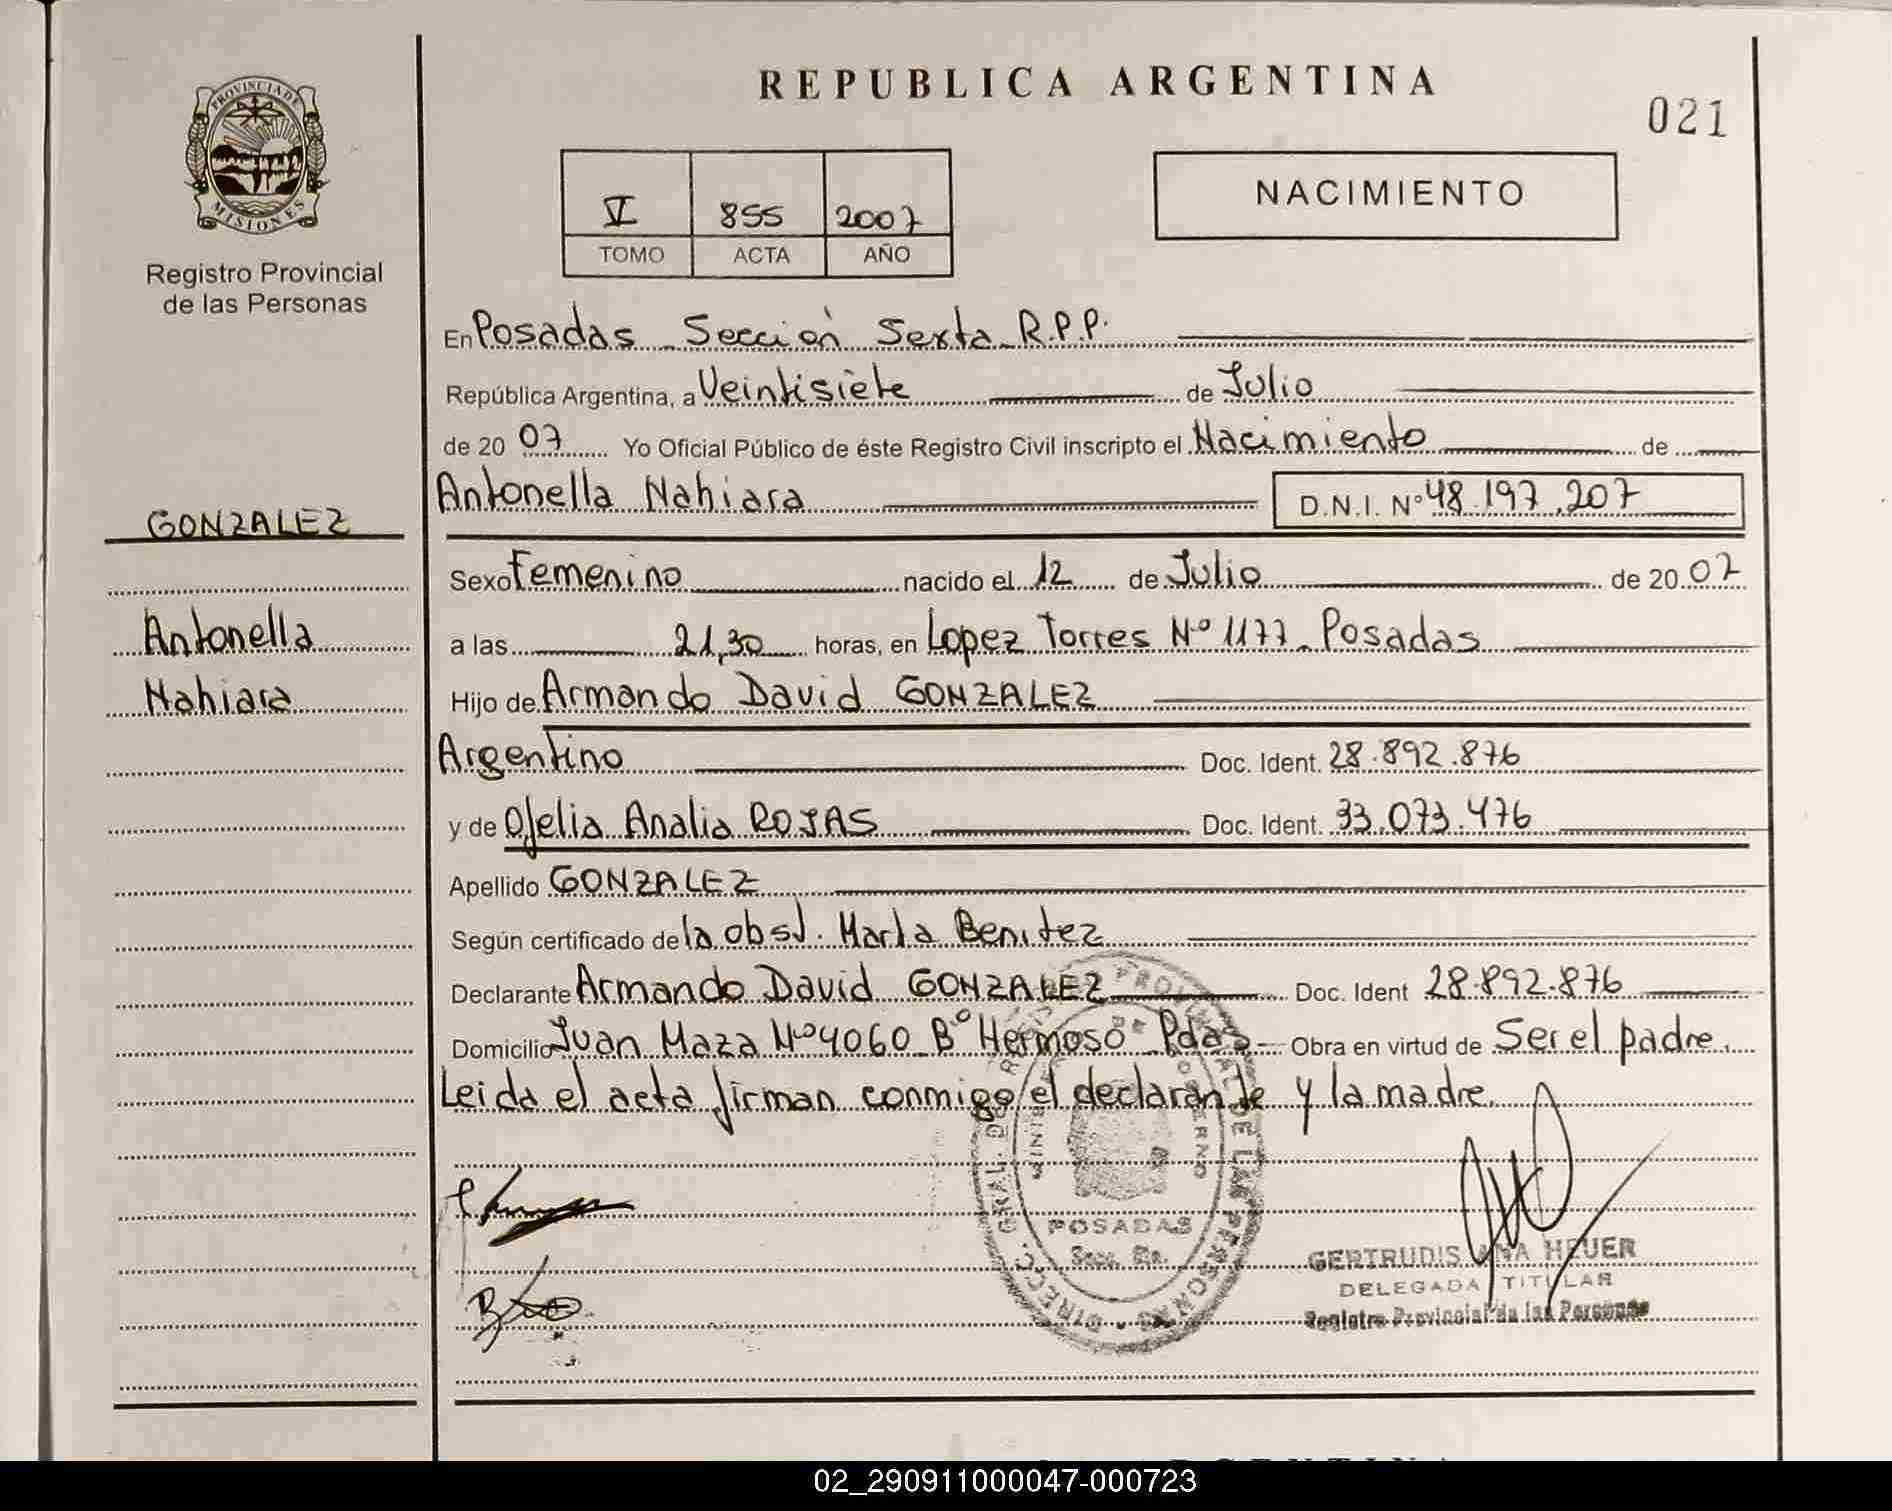 REPUBLICA ARGENTINA
021
PROVINCIA DE
MISIONES
Registro Provincial
de las Personas
V 855 2007
TOMO ACTA AÑO
NACIMIENTO
En Posadas Sección Sexta R.P.P.
República Argentina, a Veintisiete de Julio
de 20 07 Yo Oficial Público de éste Registro Civil inscripto el Nacimiento de
Antonella Nahiara D.N.I. Nº 48.197.207
GONZALEZ
Antonella
Nahiara
Sexo Femenino nacido el 12 de Julio de 20 07
a las 21,30 horas, en Lopez Torres Nº 1177 Posadas
Hijo de Armando David GONZALEZ
Argentino Doc. Ident. 28.892.876
y de Ofelia Analia ROJAS Doc. Ident. 33.073.476
Apellido GONZALEZ
Según certificado de la obst. Marta Benitez
Declarante Armando David GONZALEZ Doc. Ident 28.892.876
Domicilio Juan Maza Nº 4060 Bº Hermoso Pdas Obra en virtud de Ser el padre.
Leida el acta firman conmigo el declarante y la madre.
POSADAS
Secc. 6ta.
GERTRUDIS ANA HEUER
DELEGADA TITULAR
Registro Provincial de las Personas
02_290911000047-000723